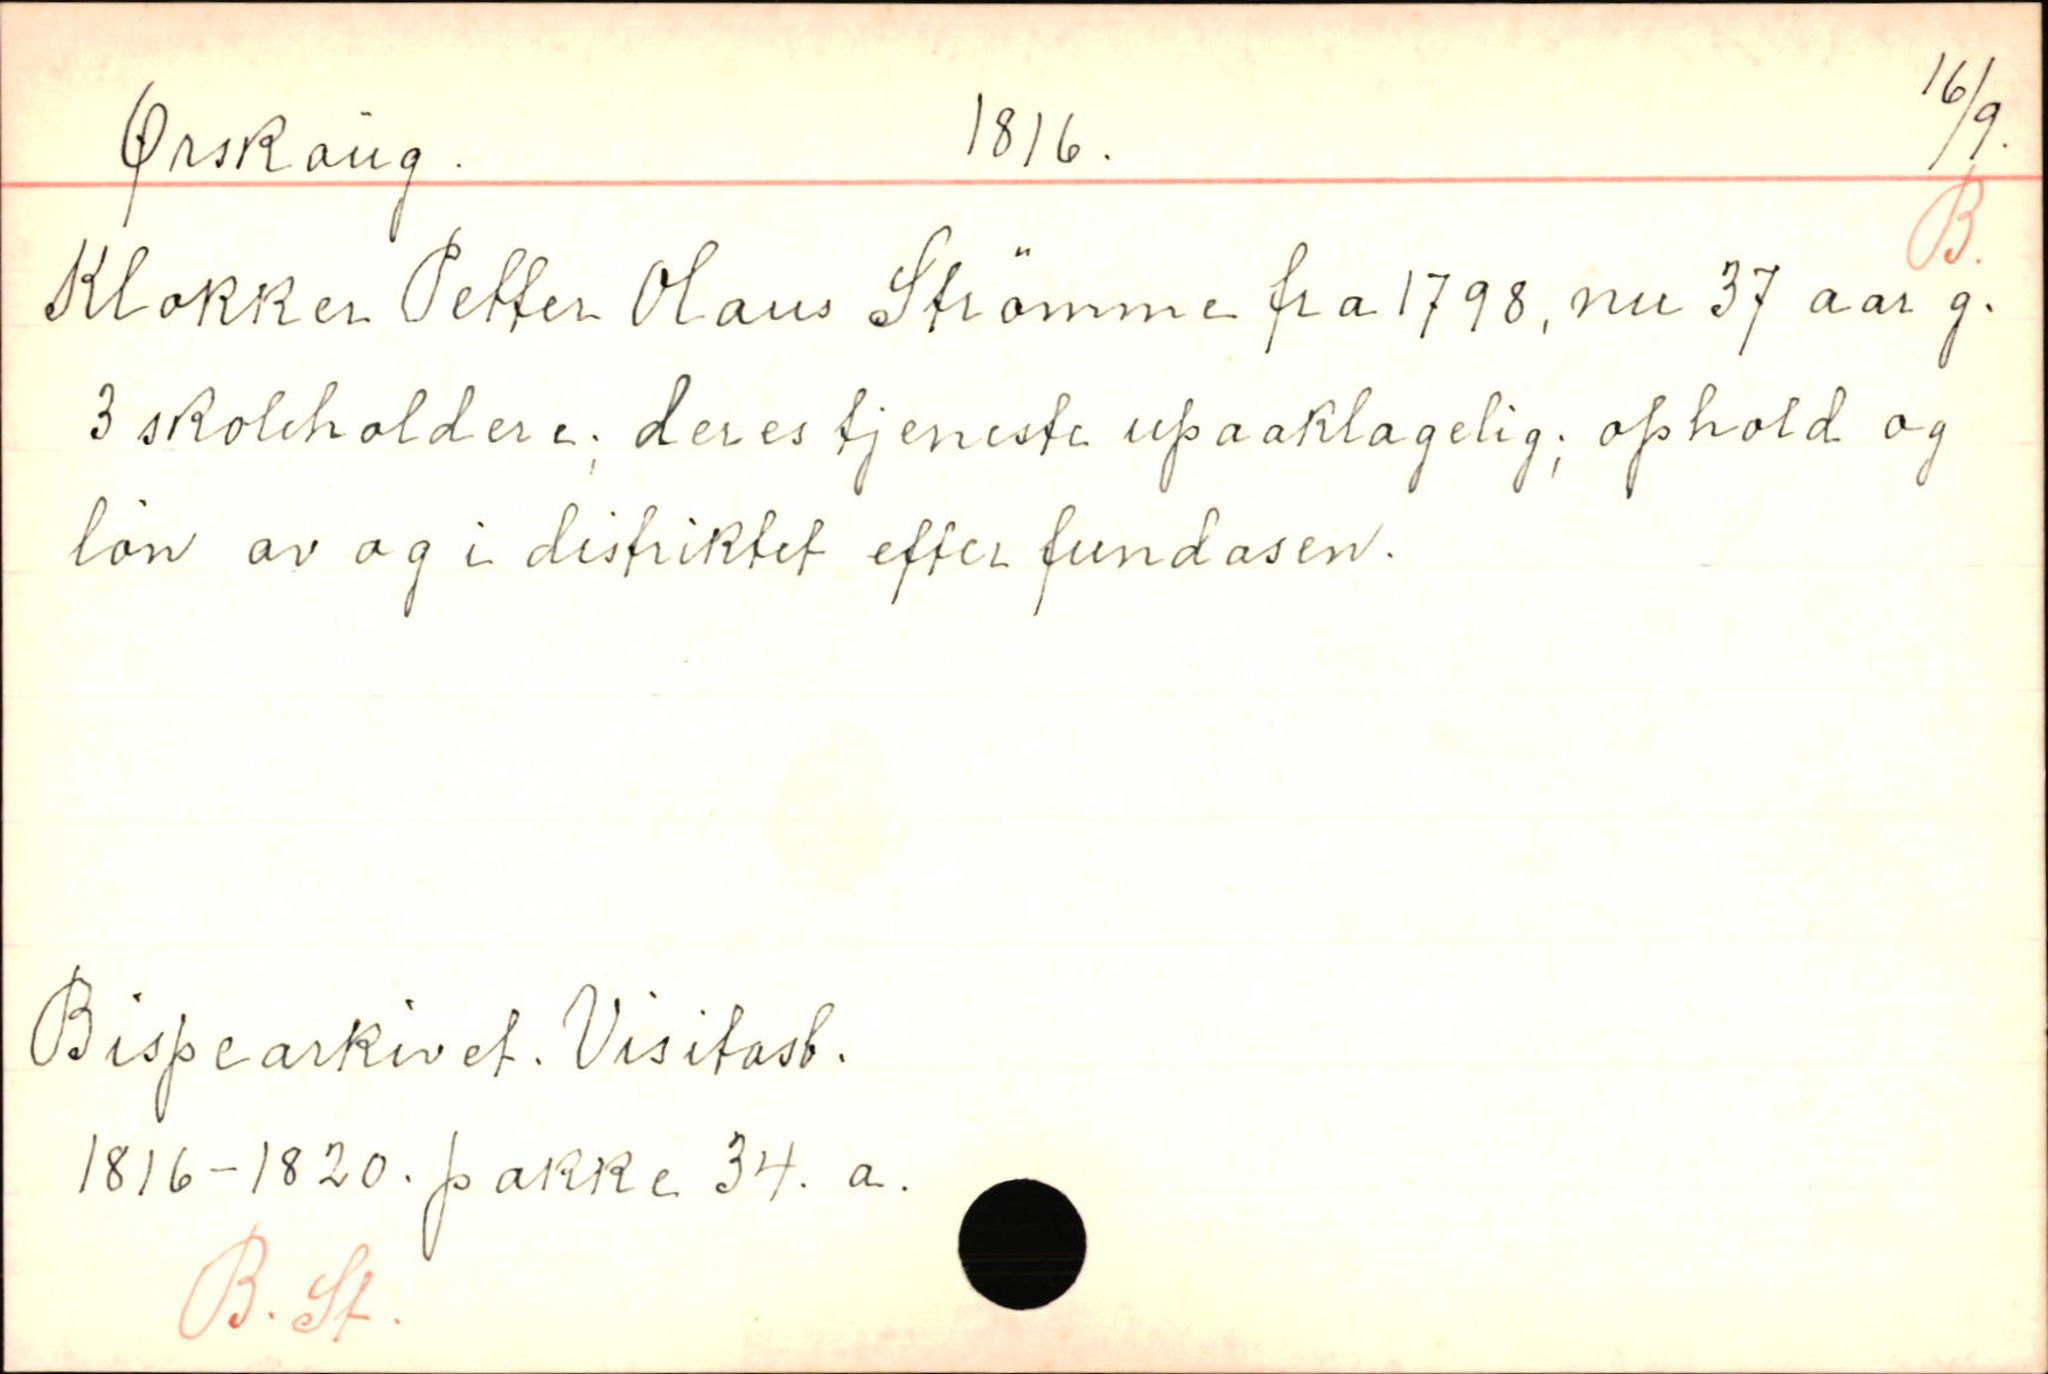 Ørskoüg. 1816. 16/9.
B.
Klokker Petter Olaus Strömme fra 1798, nu 37 aar g.
3 skoleholdere; deres tjeneste upaaklagelig; ophold og
lön av og i distriktet efter fundasen.
Bispearkivet. Visitasb.
1816-1820. pakke 34. a.
B. St.